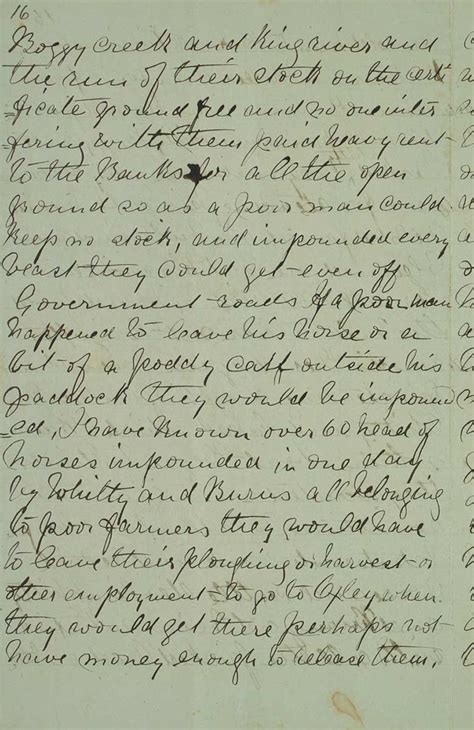 16
Boggy creek and King river and
the run of their stock on the certi
=ficate ground free and no one inter
=fering with them paid heavy rent
to the Banks for all the open
ground so as a poor man could
keep no stock, and impounded every
beast they could get even off
Government roads If a poor man
happened to leave his horse or a
bit of a poddy calf outside his
paddock they would be impound
=ed, I have known over 60 head of
horses impounded in one day
by Whitty and Burns all belonging
to poor farmers they would have
to leave their ploughing or harvest or
other employment to go to Oxley when
they would get there perhaps not
have money enough to release them,